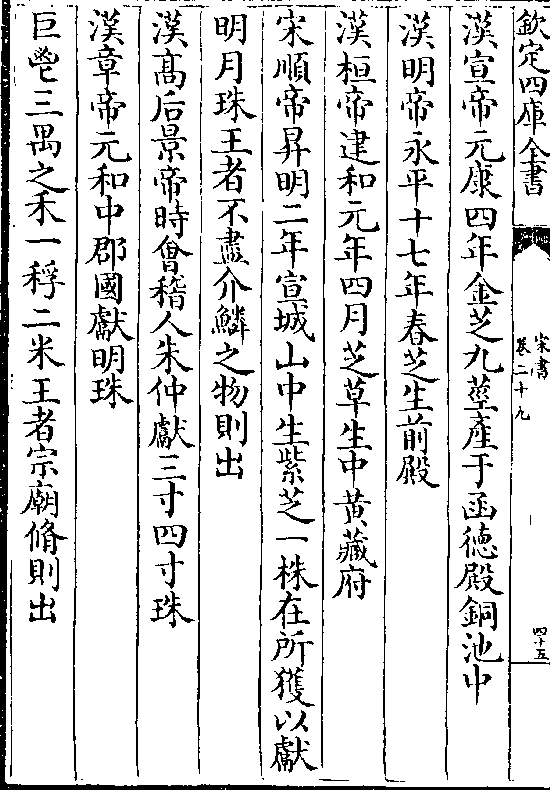 欽定四庫全書
宋書
卷二十九
四十五
漢宣帝元康四年金芝九莖產于函徳殿銅池中
漢明帝永平十七年春芝生前殿
漢桓帝建和元年四月芝草生中黃藏府
宋順帝昇明二年宣城山中生紫芝一株在所獲以獻
明月珠王者不盡介鱗之物則出
漢髙后景帝時會稽人朱仲獻三寸四寸珠
漢章帝元和中郡國獻明珠
巨鬯三禺之禾一稃二米王者宗廟脩則出